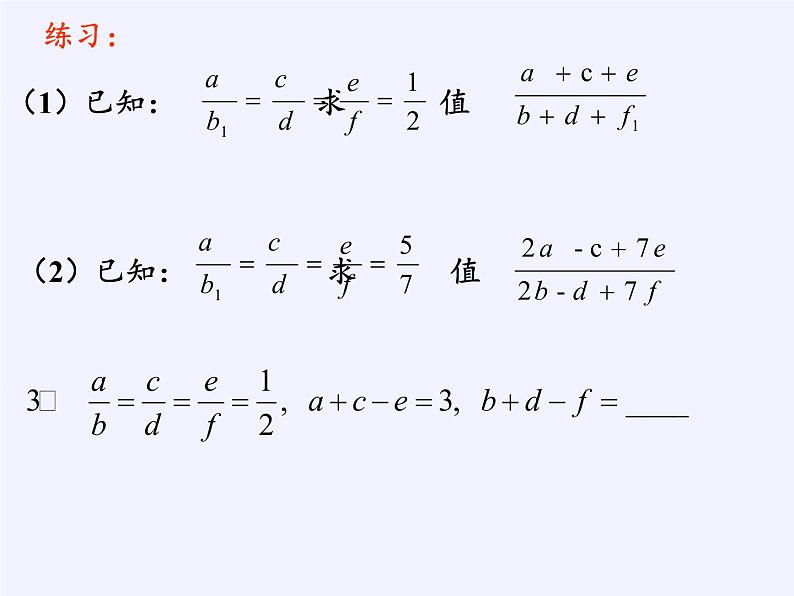 练习：
（1）已知： a/b₁ = c/d = e/f = 1/2 求 值 (a + c + e)/(b + d + f₁)
（2）已知： a/b₁ = c/d = e/f = 5/7 求 值 (2a - c + 7e)/(2b - d + 7f)
3□ a/b = c/d = e/f = 1/2, a + c − e = 3, b + d − f = ____